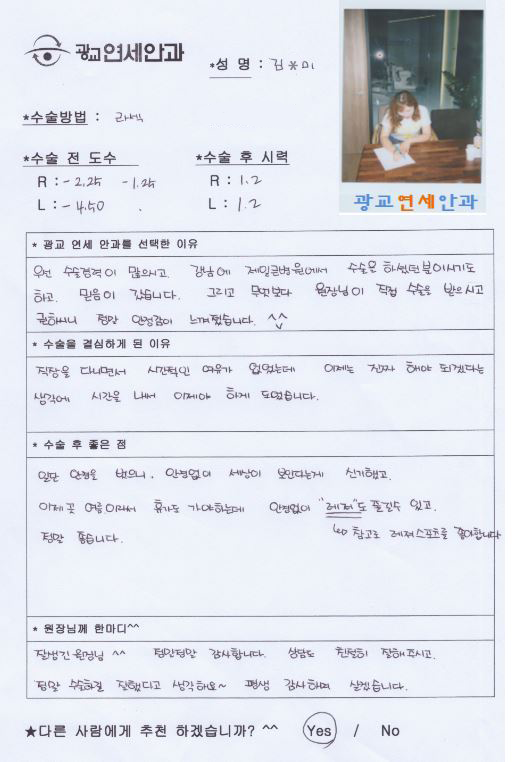 광교연세안과
*성 명 : 김*미
*수술방법 : 라섹
*수술 전 도수
R : - 2.25 -1.25
L : - 4.50 .
*수술 후 시력
R : 1.2
L : 1.2
광교연세안과
* 광교 연세 안과를 선택한 이유
우선 수술경력이 많으시고. 강남에 제일큰병원에서 수술은 하셨던분이시기도
하고. 믿음이 갔습니다. 그리고 무엇보다 원장님이 직접 수술을 받으시고
권하시니 정말 안정감이 느껴졌습니다. ^^
* 수술을 결심하게 된 이유
직장을 다니면서 시간적인 여유가 없었는데 이제는 진짜 해야 되겠다는
생각에 시간을 내서 이제야 하게 되었습니다.
* 수술 후 좋은 점
일단 안경을 벗으니, 안경없이 세상이 보인다는게 신기했고.
이제 곧 여름이라서 휴가도 가야하는데 안경없이 "레져"도 즐길수 있고.
정말 좋습니다.
↳ 참고로 레져스포츠를 좋아합니다
* 원장님께 한마디^^
잘생긴 원장님 ^^ 정말정말 감사합니다. 상담도 친절히 잘해주시고.
정말 수술하길 잘했다고 생각해요~ 평생 감사하며 살겠습니다.
★다른 사람에게 추천 하겠습니까? ^^ Yes / No